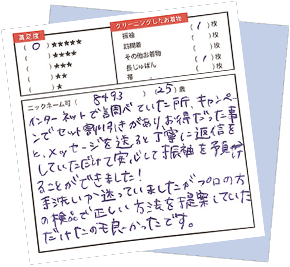 満足度
(○) ★★★★★
( ) ★★★★
( ) ★★★
( ) ★★
( ) ★
クリーニングしたお着物
振袖 ( 1 ) 枚
訪問着 ( ) 枚
その他お着物 ( ) 枚
長じゅばん ( ) 枚
帯 ( 1 ) 枚
ニックネーム可 ( 8493 ) ( 25 ) 歳
インターネットで調べていた所、キャンペー
ンでセット割引きがありお得だった事
と、メッセージを送ると丁寧に返信を
していただけて安心して振袖を預け
ることができました!
手洗いか迷っていましたがプロの方
の検品で正しい方法を提案していた
だけたのも良かったです。